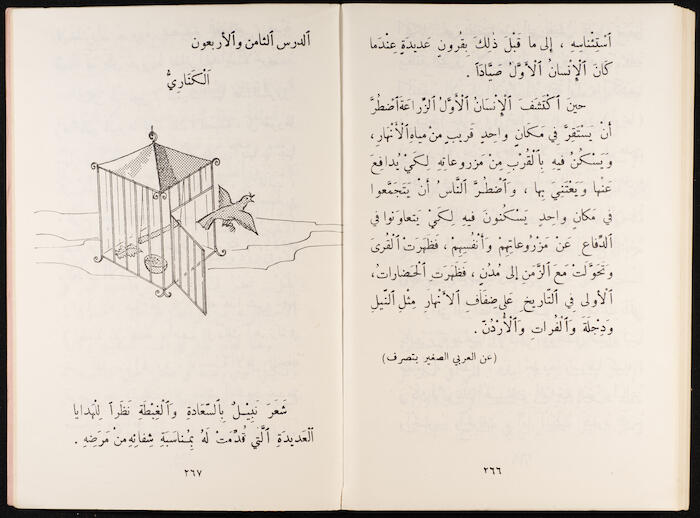 اَسْتِئْناسِهِ ، إِلى ما قَبْلَ ذٰلِكَ بِقُرونٍ عَديدَةٍ عِنْدَما
كانَ ٱلْإِنْسانُ ٱلْأَوَّلُ صَيَّاداً .
حينَ ٱكْتَشَفَ ٱلْإِنْسانُ ٱلْأَوَّلُ ٱلزِّراعَةَ ٱضْطُرَّ
أَنْ يَسْتَقِرَّ في مَكانٍ واحِدٍ قَريبٍ مِنْ مِياهِ ٱلْأَنْهارِ ،
وَيَسْكُنُ فيهِ بِٱلْقُرْبِ مِنْ مَزْروعاتِهِ لِكَيْ يُدافِعَ
عَنْها وَيَعْتَنِيَ بِها ، وَٱضْطُرَّ ٱلنَّاسُ أَنْ يَتَجَمَّعوا
في مَكانٍ واحِدٍ يَسْكُنونَ فيهِ لِكَيْ يَتَعاوَنوا في
ٱلدِّفاعِ عَنْ مَزْروعاتِهِمْ وَأَنْفُسِهِمْ ، فَظَهَرَتْ ٱلْقُرىٰ
وَتَحَوَّلَتْ مَعَ ٱلزَّمَنِ إِلى مُدُنٍ ، فَظَهَرَتِ ٱلْحَضاراتُ ،
ٱلْأُولى في ٱلتَّاريخِ عَلى ضِفافِ ٱلْأَنْهارِ مِثْلِ ٱلنِّيلِ
وَدِجْلَةَ وَٱلْفُراتِ وَٱلْأُرْدُنِّ .
(عن العربي الصغير بتصرف)
٢٦٦
ٱلدرس ٱلثامن وٱلأربعون
اَلْكَنارِيُّ
شَعَرَ نَبيلٌ بِٱلسَّعادَةِ وَٱلْغِبْطَةِ نَظَراً لِلْهَدايا
ٱلْعَديدَةِ ٱلَّتي قُدِّمَتْ لَهُ بِمُناسَبَةِ شِفائِهِ مِنْ مَرَضِهِ .
٢٦٧